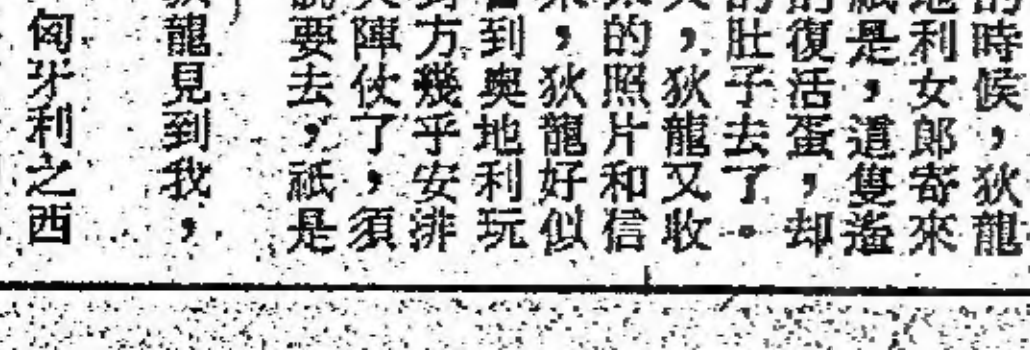 的時候，狄龍
地利女郎寄來
祇是，這隻
的復活蛋，却
的肚子去了。
狄龍又收
的照片和信
，狄龍好似
到奧地利玩
方幾乎安排
陣仗了，須
要去，祇是
龍見到我，
匈牙利之西